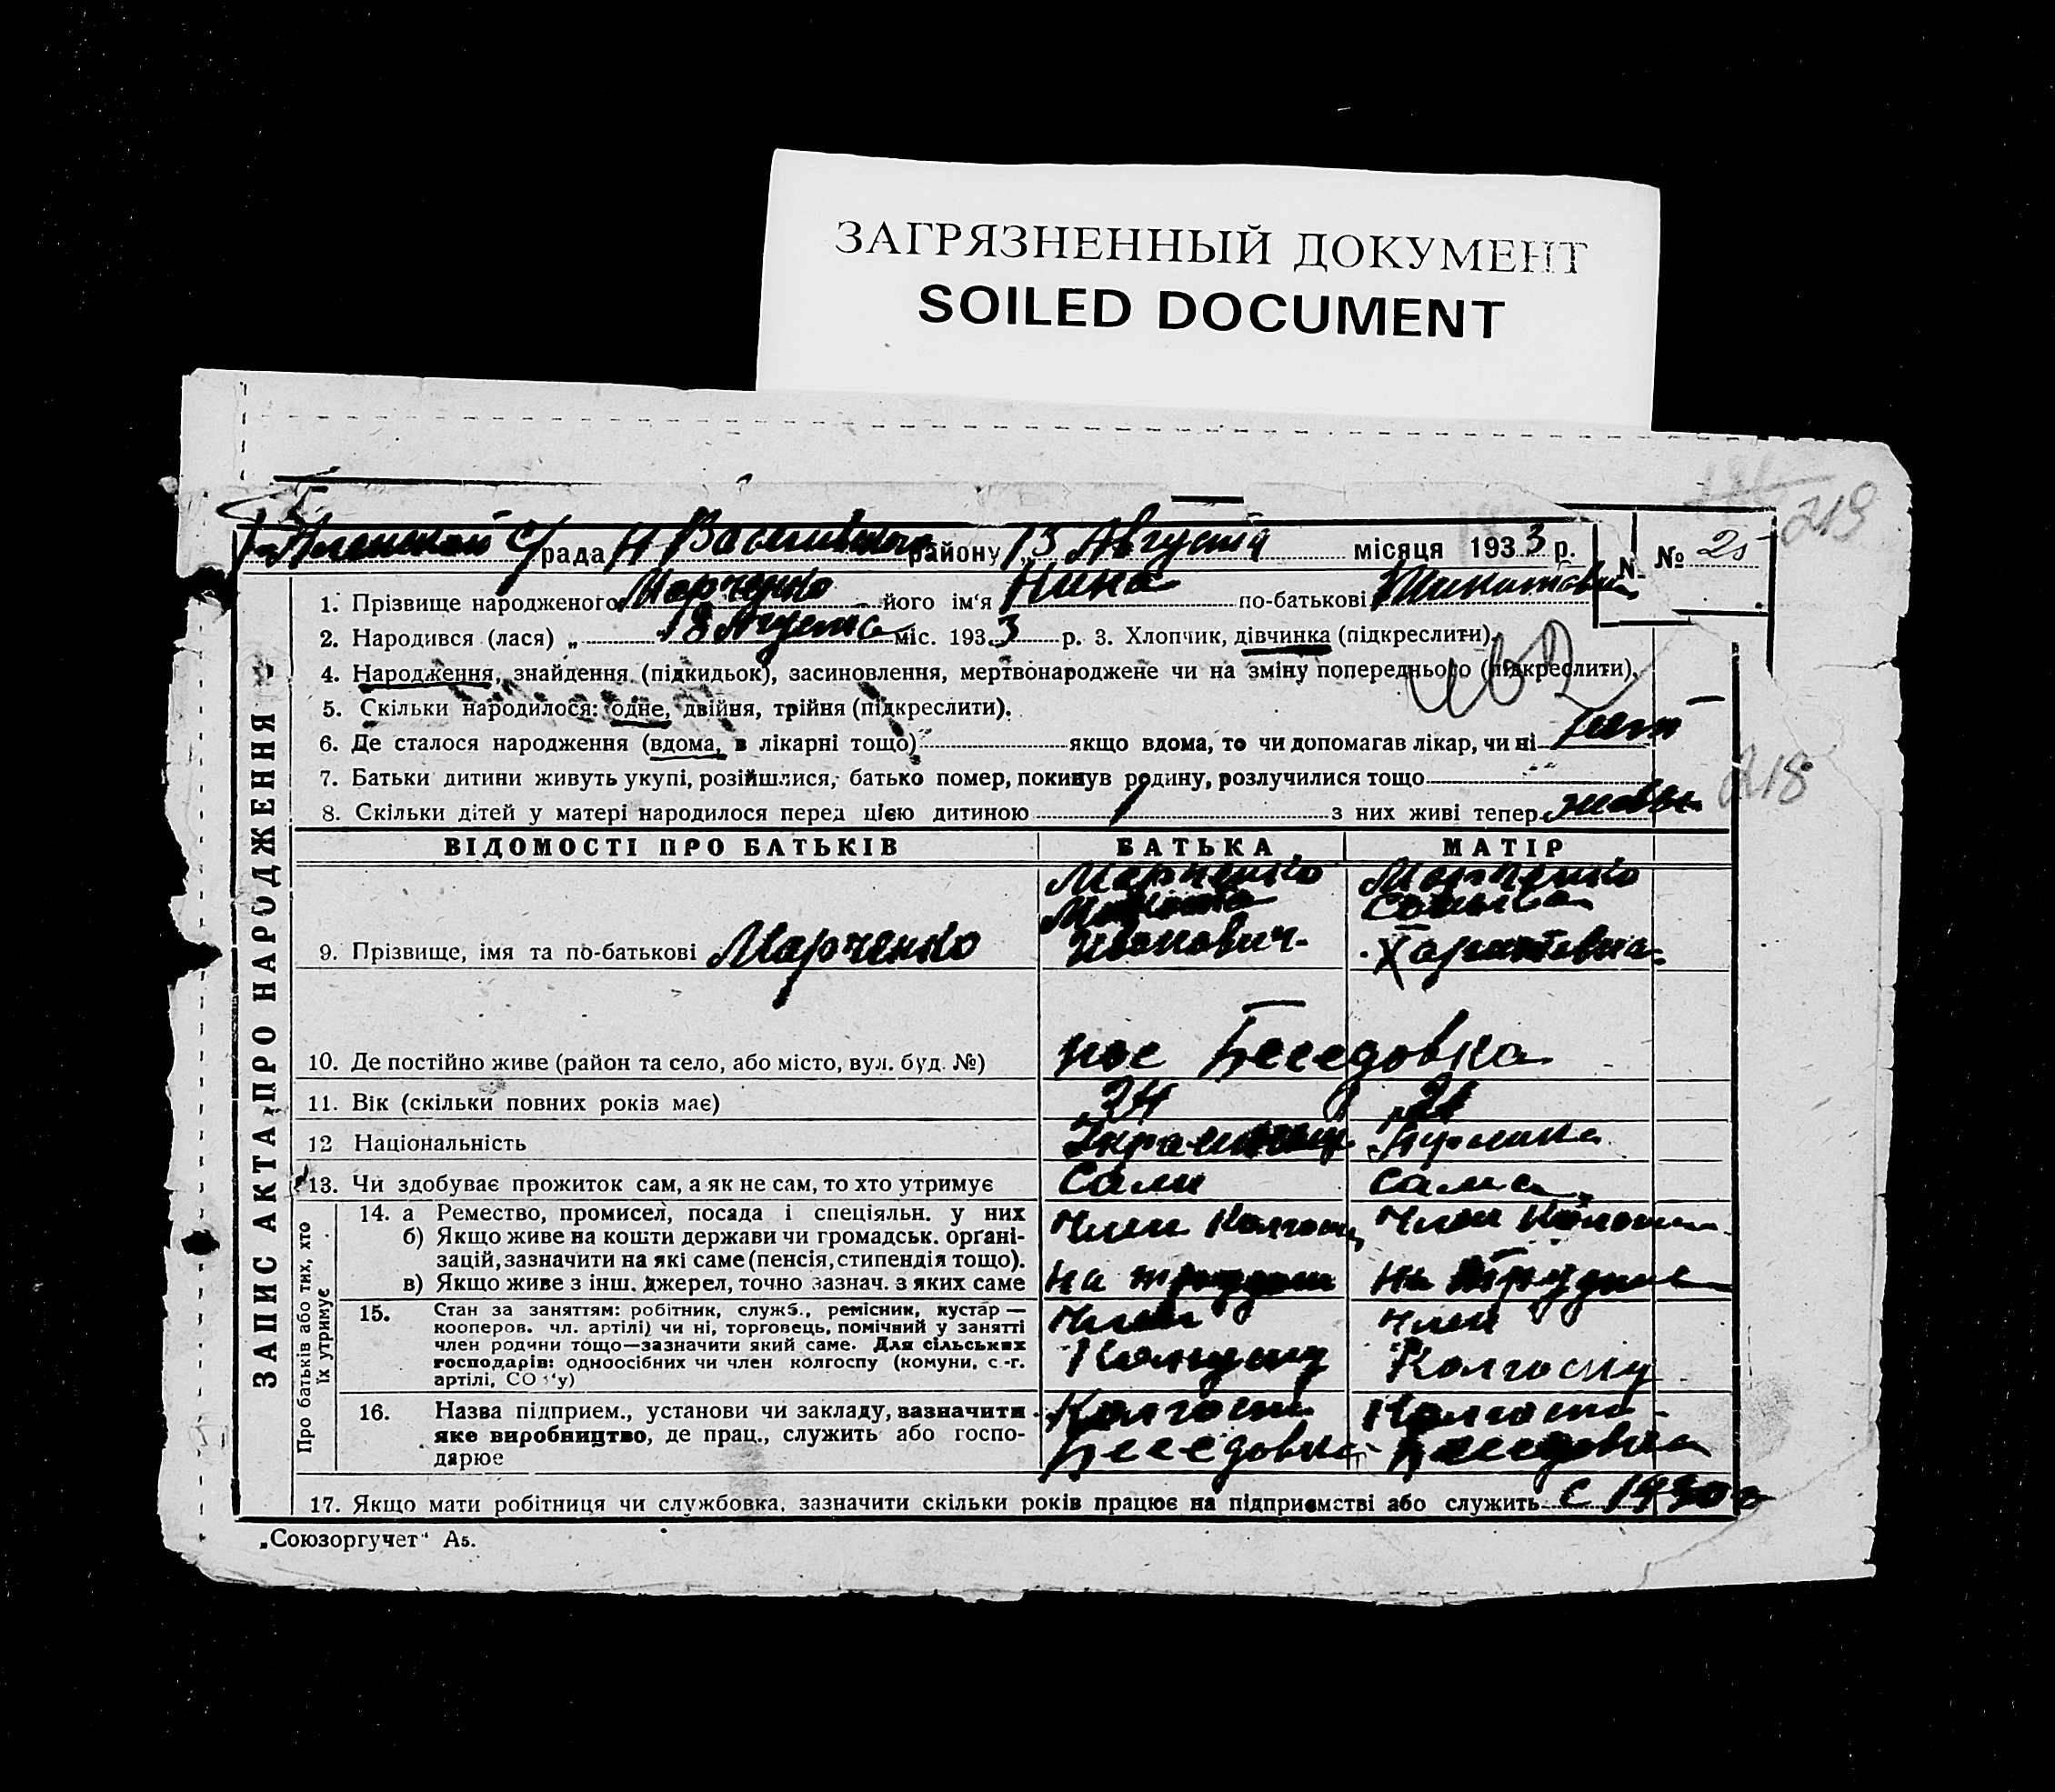 ЗАГРЯЗНЕННЫЙ ДОКУМЕНТ
SOILED DOCUMENT
219
рада Н Василівського району 13 Августа місяця 1933 р. № 25
ЗАПИС АКТА ПРО НАРОДЖЕННЯ
1. Прізвище народженого Марченко його ім'я Нина по-батькові
2. Народився (лася) „ 18 Августа міс. 1933 р. 3. Хлопчик, дівчинка (підкреслити).
4. Народження, знайдення (підкидьок), засиновлення, мертвонароджене чи на зміну попереднього (підкреслити).
5. Скільки народилося: одне, двійня, трійня (підкреслити).
6. Де сталося народження (вдома, в лікарні тощо) якщо вдома, то чи допомагав лікар, чи ні нет
7. Батьки дитини живуть укупі, розійшлися, батько помер, покинув родину, розлучилися тощо
218
8. Скільки дітей у матері народилося перед цією дитиною 1 з них живі тепер
ВІДОМОСТІ ПРО БАТЬКІВ БАТЬКА МАТІР
Марченко Марченко
9. Прізвище, імя та по-батькові Марченко Иванович
10. Де постійно живе (район та село, або місто, вул. буд. №) пос Беседовка
11. Вік (скільки повних років має) 24 21
12 Національність
13. Чи здобуває прожиток сам, а як не сам, то хто утримує Сам Сама
Про батьків або тих, хто їх утримує
14. а Ремество, промисел, посада і спеціяльн. у них Член Колгоспу Член Колгоспу
б) Якщо живе на кошти держави чи громадськ. орґані-
зацій, зазначити на які саме (пенсія, стипендія тощо).
в) Якщо живе з інш. джерел, точно зазнач. з яких саме на на
15. Стан за заняттям: робітник, служб., ремісник, кустар —
кооперов. чл. артілі) чи ні, торговець, помічний у занятті
член родини тощо—зазначити який саме. Для сільських
господарів: одноосібних чи член колгоспу (комуни, с.-г.
артілі, СО у)
Член Член
Колгоспу Колгоспу
16. Назва підприєм., установи чи закладу, зазначити
яке виробництво, де прац., служить або госпо-
дарює
Колгосп Колгосп
Беседовка Беседовка
17. Якщо мати робітниця чи службовка, зазначити скільки років працює на підприємстві або служить с 1930
„Союзоргучет" А5.